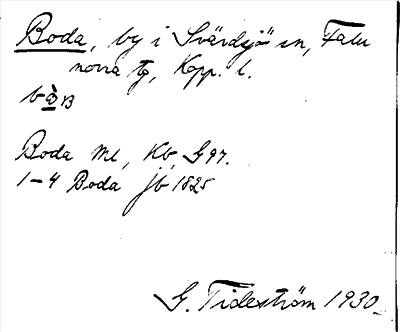 Boda, by i Svärdsjö sn, Falu
norra tg, Kopp. l.
Boda Ml, Kb, G97.
1–4 Boda jb 1825
G. Tideström 1930